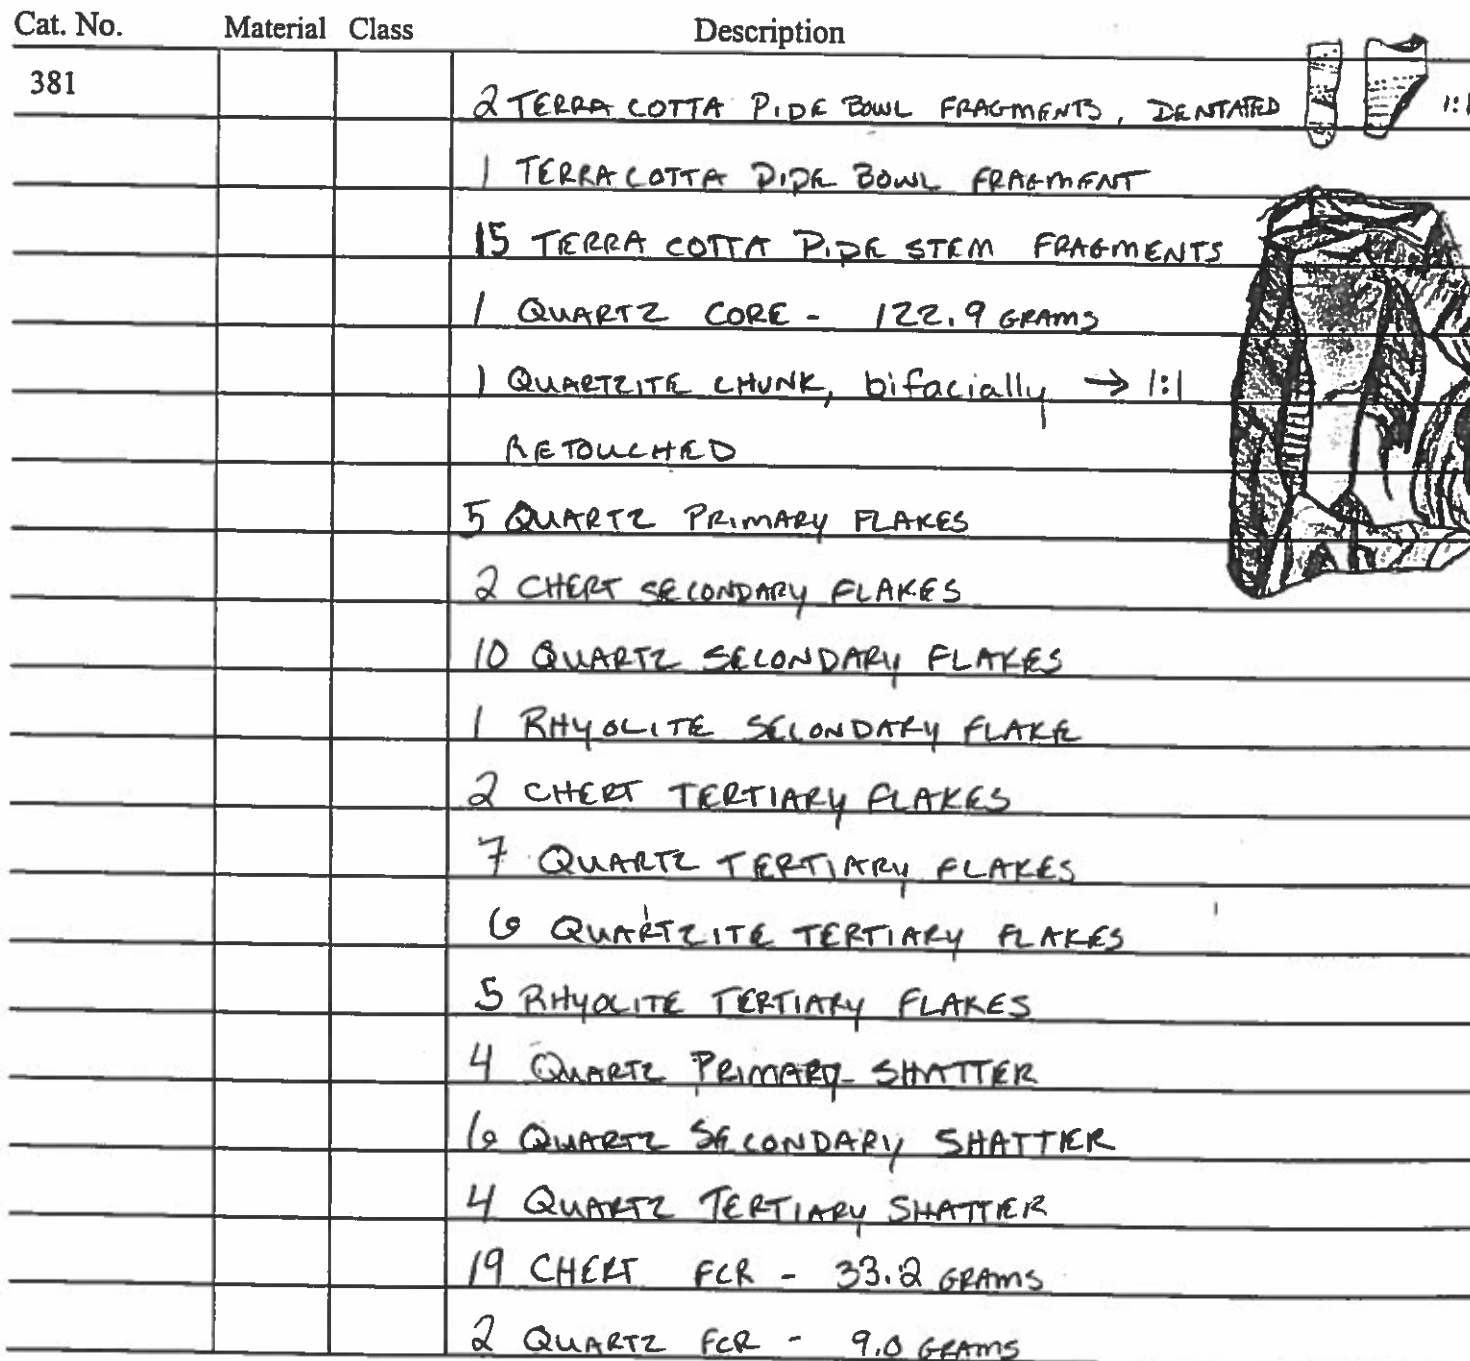 Cat. No. Material Class Description
381
2 TERRA COTTA PIPE BOWL FRAGMENTS, DENTATED 1:1
1 TERRA COTTA PIPE BOWL FRAGMENT
15 TERRA COTTA PIPE STEM FRAGMENTS
1 QUARTZ CORE - 122.9 GRAMS
1 QUARTZITE CHUNK, bifacially → 1:1
RETOUCHED
5 QUARTZ PRIMARY FLAKES
2 CHERT SECONDARY FLAKES
10 QUARTZ SECONDARY FLAKES
1 RHYOLITE SECONDARY FLAKE
2 CHERT TERTIARY FLAKES
7 QUARTZ TERTIARY FLAKES
6 QUARTZITE TERTIARY FLAKES
5 RHYOLITE TERTIARY FLAKES
4 QUARTZ PRIMARY SHATTER
6 QUARTZ SECONDARY SHATTER
4 QUARTZ TERTIARY SHATTER
19 CHERT FCR - 33.2 GRAMS
2 QUARTZ FCR - 9.0 GRAMS